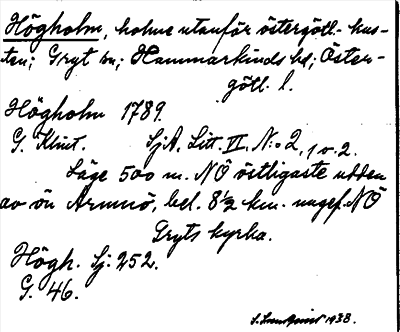 Högholm, holme utanför östergötl. kus-
ten; Gryt sn; Hammarkinds hd; Öster-
götl. l.
Högholm 1789.
G. Klint. SjA, Litt. II, N:o 2, 1 o. 2.
Läge 500 m. NÖ östligaste udden
av ön Armnö, bel. 8½ km. ungef. NÖ
Gryts kyrka.
Högh. Sj. 252.
G. 46.
1938.